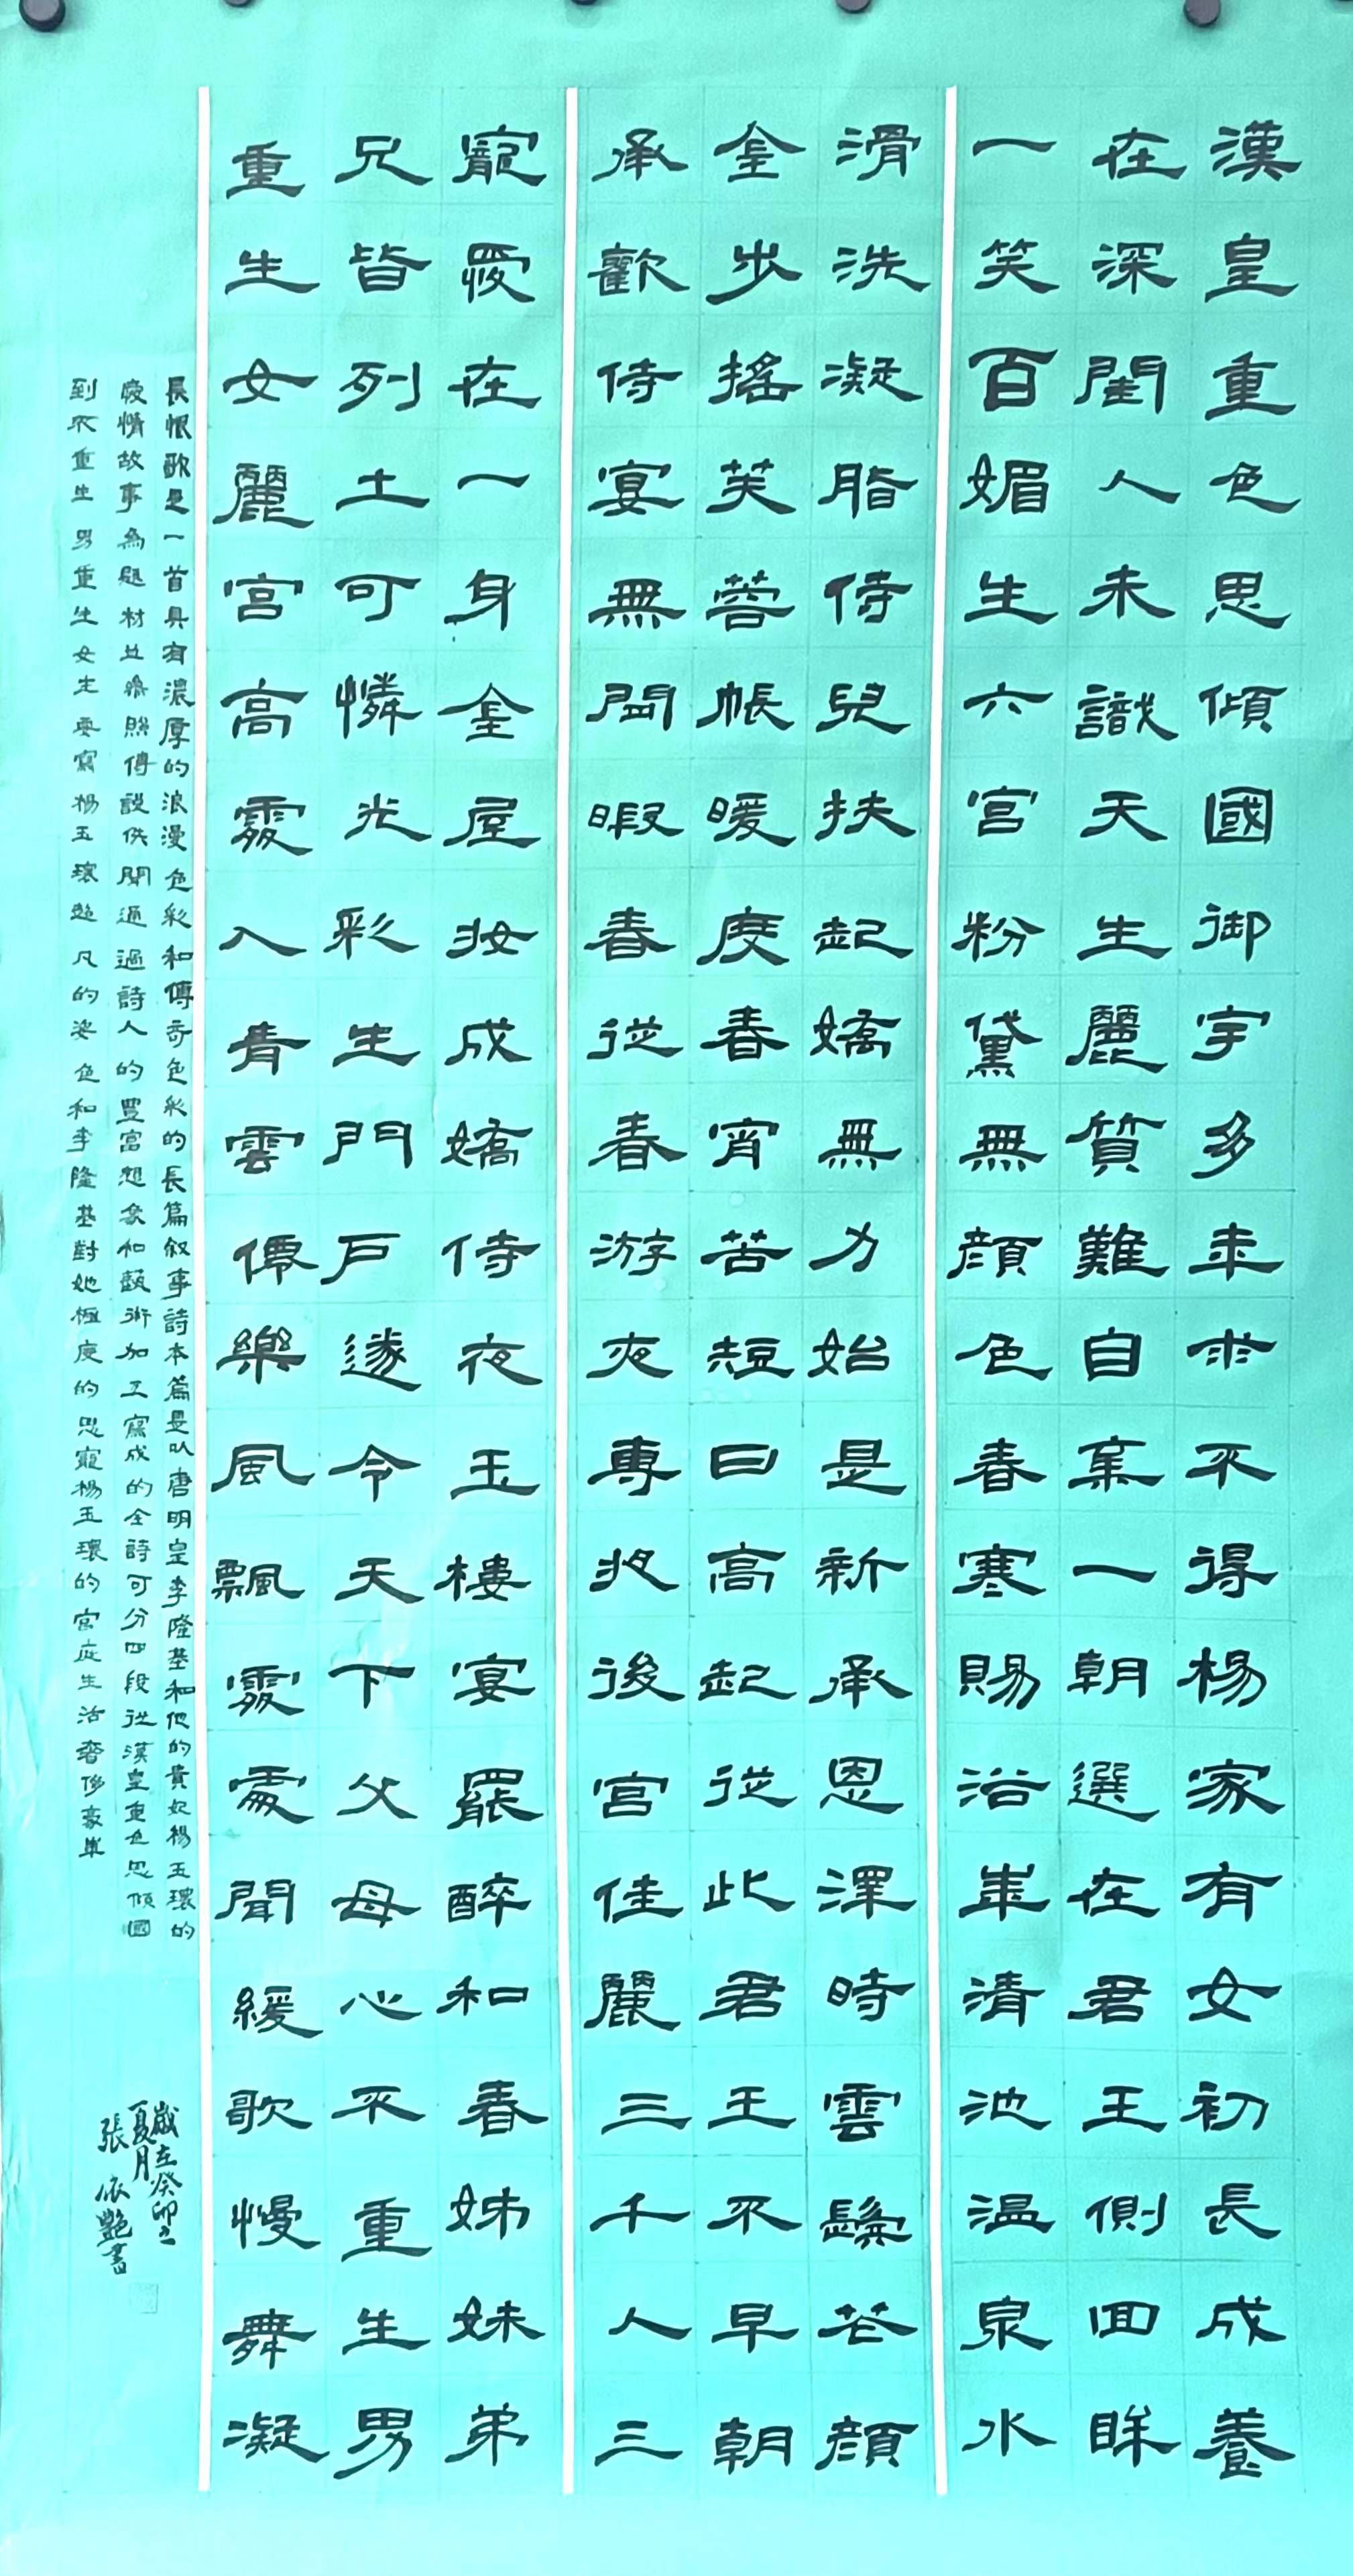 漢皇重色思傾國御宇多年求不得楊家有女初長成養
在深閨人未識天生麗質難自棄一朝選在君王側回眸
一笑百媚生六宮粉黛無顏色春寒賜浴華清池温泉水
滑洗凝脂侍兒扶起嬌無力始是新承恩澤時雲鬢花顏
金步搖芙蓉帳暖度春宵春宵苦短日高起從此君王不早朝
承歡侍宴無閑暇春從春游夜專夜後宮佳麗三千人三
寵愛在一身金屋妝成嬌侍夜玉樓宴罷醉和春姊妹弟
兄皆列土可憐光彩生門戶遂令天下父母心不重生男
重生女麗宮高處入青雲僊樂風飄處處聞緩歌慢舞凝
長恨歌是一首具有濃厚的浪漫色彩和傳奇色彩的長篇叙事詩本篇是以唐明皇李隆基和他的貴妃楊玉環的
愛情故事為題材並參照傳說佚聞通過詩人的豐富想象和藝術加工寫成的全詩可分四段從漢皇重色思傾國
到不重生男重生女主要寫楊玉環超凡的姿色和李隆基對她極度的恩寵楊玉環的宮庭生活奢侈豪華
歲在癸卯之
夏月
張依艷書